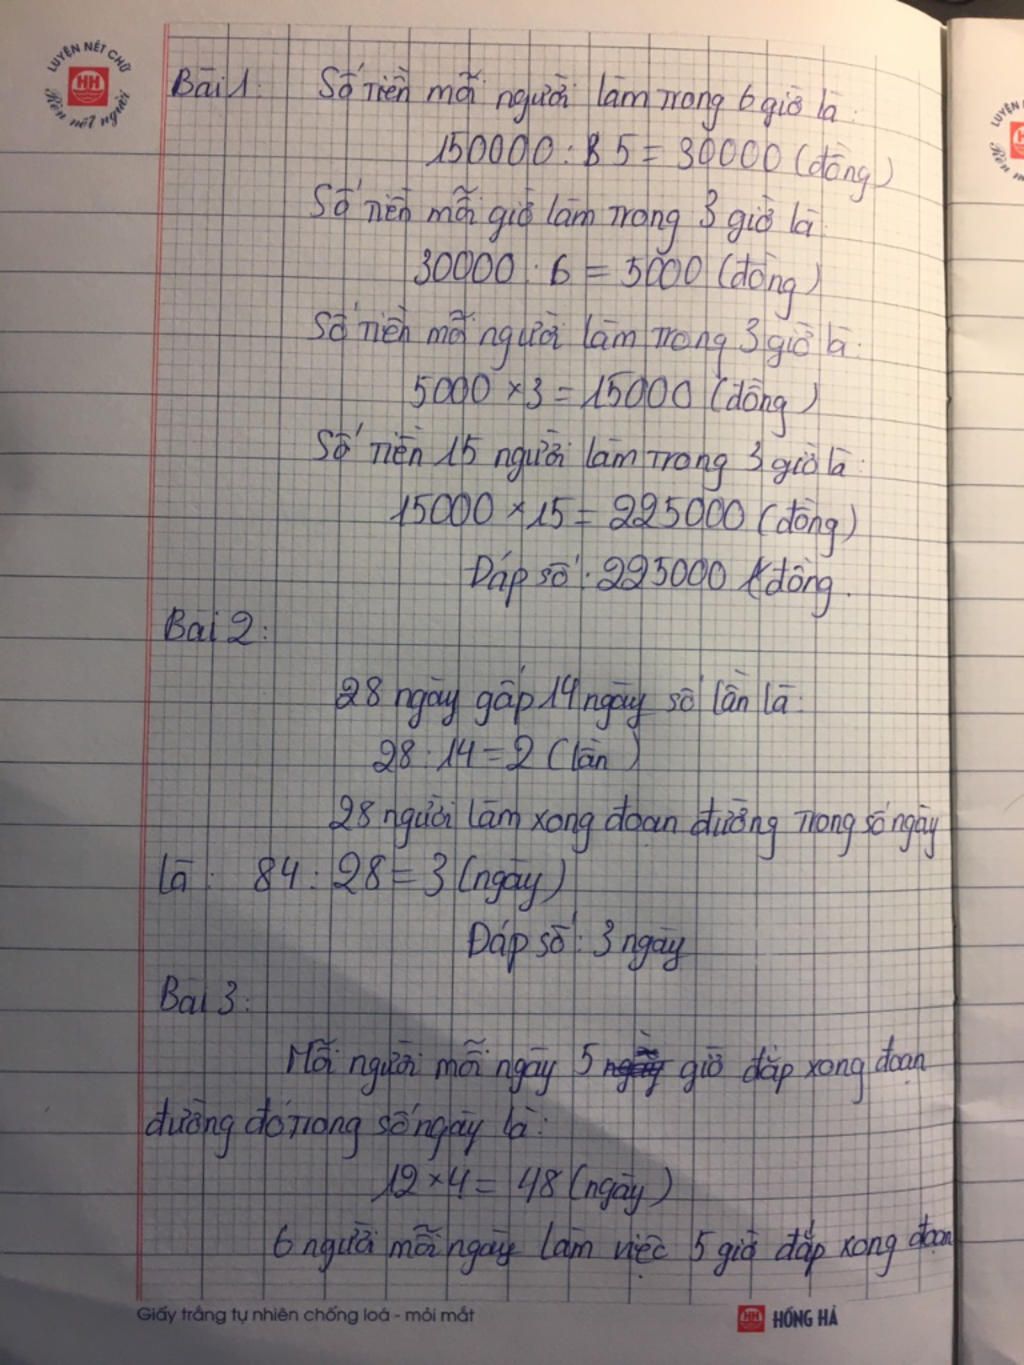 LUYỆN NÉT CHỮ
HH
Rèn nết người
Bài 1: Số tiền mỗi người làm trong 6 giờ là:
150000 : 5 = 30000 (đồng)
Số tiền mỗi giờ làm trong 3 giờ là:
30000 : 6 = 5000 (đồng)
Số tiền mỗi người làm trong 3 giờ là:
5000 × 3 = 15000 (đồng)
Số tiền 15 người làm trong 3 giờ là:
15000 × 15 = 225000 (đồng)
Đáp số: 225000 đồng.
Bài 2:
28 ngày gấp 14 ngày số lần là:
28 : 14 = 2 (lần)
28 người làm xong đoạn đường trong số ngày
là: 84 : 28 = 3 (ngày)
Đáp số: 3 ngày
Bài 3:
Mỗi người mỗi ngày 5 giờ đắp xong đoạn
đường đó trong số ngày là:
12 × 4 = 48 (ngày)
6 người mỗi ngày làm việc 5 giờ đắp xong đoạn
Giấy trắng tự nhiên chống loá - mỏi mắt
HH HỒNG HÀ